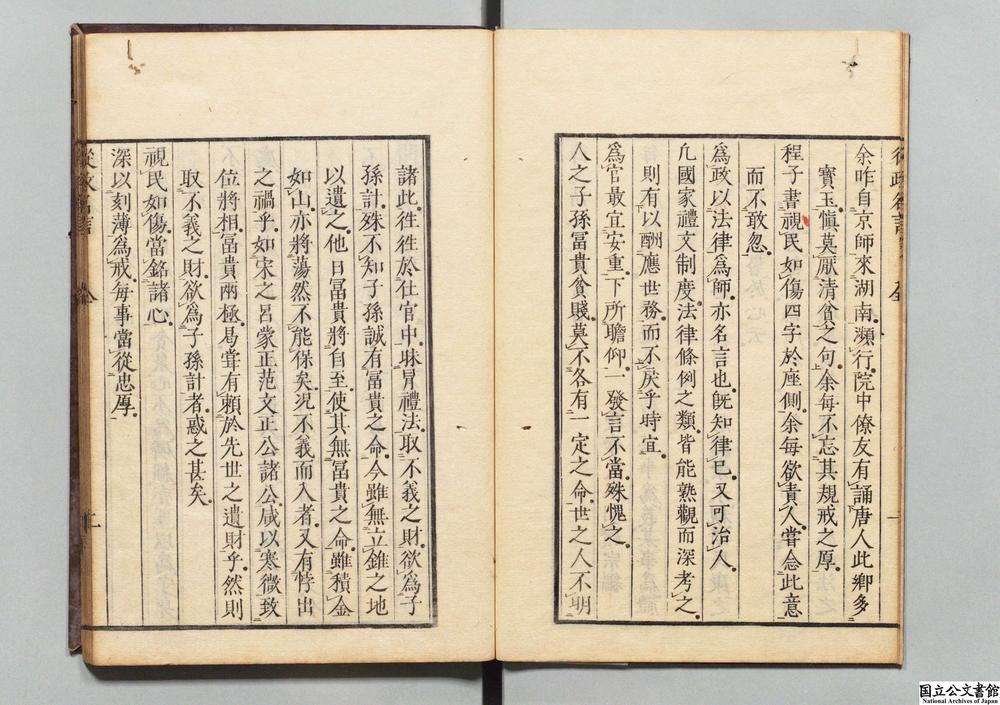 余昨自京師來湖南瀕行院中僚友有誦唐人此鄉多
寶玉愼莫厭淸貧之句余每不忘其規戒之厚
程子書視民如傷四字於座側余每欲責人嘗念此意
而不敢忽
爲政以法律爲師亦名言也旣知律已又可治人
凢國家禮文制度法律條例之類皆能熟觀而深考之
則有以酬應世務而不戾乎時宜
爲官最宜安重下所瞻仰一發言不當殊愧之
人之子孫冨貴貧賤莫不各有一定之命世之人不明
諸此徃徃於仕官中昧冐禮法取不義之財欲爲子
孫計殊不知子孫誠有冨貴之命今雖無立錐之地
以遺之他日冨貴將自至使其無冨貴之命雖積金
如山亦將蕩然不能保矣况不義而入者又有悖出
之禍乎如宋之呂蒙正范文正公諸公咸以寒微致
位將相冨貴兩極曷甞有賴於先世之遺財乎然則
取不義之財欲爲子孫計者惑之甚矣
視民如傷當銘諸心
深以刻薄爲戒每事當從忠厚
國立公文書館
National Archives of Japan